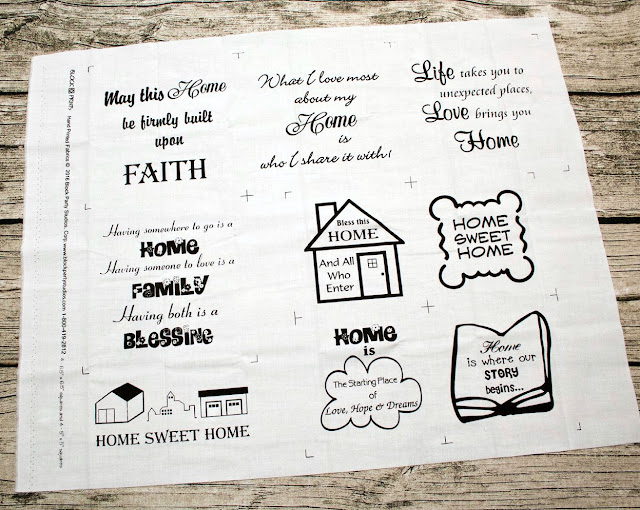 BLOCK PARTY
Hand Printed Fabrics © 2016 Block Party Studios, Corp. www.blockpartystudios.com 1-800-419-2812
May this Home
be firmly built
upon
FAITH
What I love most
about my
Home
is
who I share it with!
Life takes you to
unexpected places,
Love brings you
Home
Having somewhere to go is a
HOME
Having someone to love is a
FAMILY
Having both is a
BLESSING
Bless this
HOME
And All
Who
Enter
HOME
SWEET
HOME
HOME SWEET HOME
HOME
is
The Starting Place
of
Love, Hope & Dreams
Home
is where our
STORY
begins...